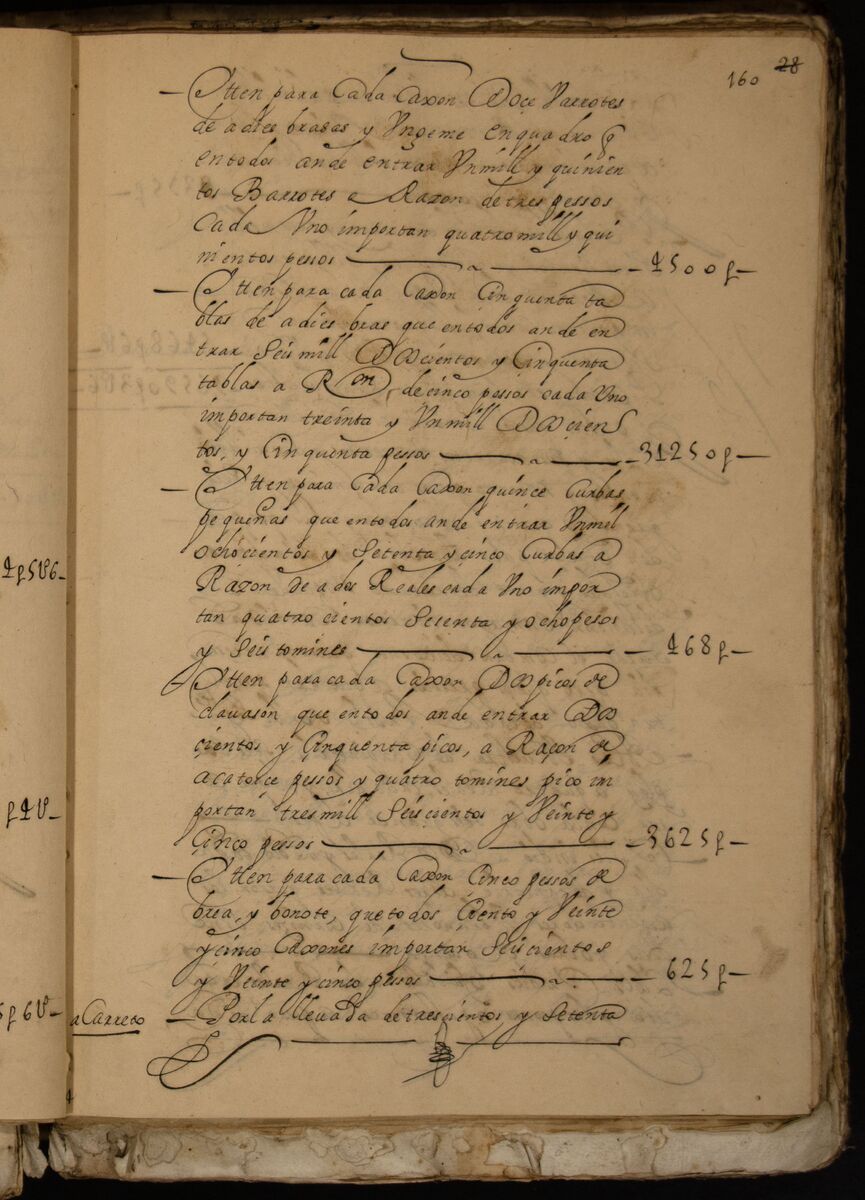 160 28
— Itten para Cada Caxon Doçe Varrotes
de a dies brasas y Vn geme en quadro q
en todos an de entrar Vn mill y quinien
tos Barrotes a Raxon de tres pessos
Cada Vno importan quatro mill y qui
nientos pessos — 4500 p —
— Itten para cada Caxon Cinquenta ta
blas de a dies bras que en todos an de en
trar Seis mill Doscientos y Cinquenta
tablas a Ron, de cinco pessos cada Vno
importan treinta y Vn mill Doscien
tos, y Cinquenta pessos — 31250 p —
— Itten para Cada Caxon quince Curbas
pequeñas que en todos an de entrar Vn mil
ochocientos y Setenta y cinco Curbas a
Razon de a dos Reales cada Vno impor
tan quatro cientos Sesenta y ocho pesos
y Seis tomines — 468 p —
— Itten para cada Caxon Dos picos de
clauason que en todos an de entrar Dos
cientos y Cinquenta picos, a Raçon de
a catorce pessos y quatro tomines pico im
portan tres mill Seiscientos y Veinte y
Cinco pessos — 3625 p —
— Itten para cada Caxon Cinco pessos de
brea, y bonote, que todos Ciento y Veinte
y cinco Caxones importan Seiscientos
y Veinte y cinco pessos — 625 p —
acarreto — Por la lleuada de trescientos y Setenta